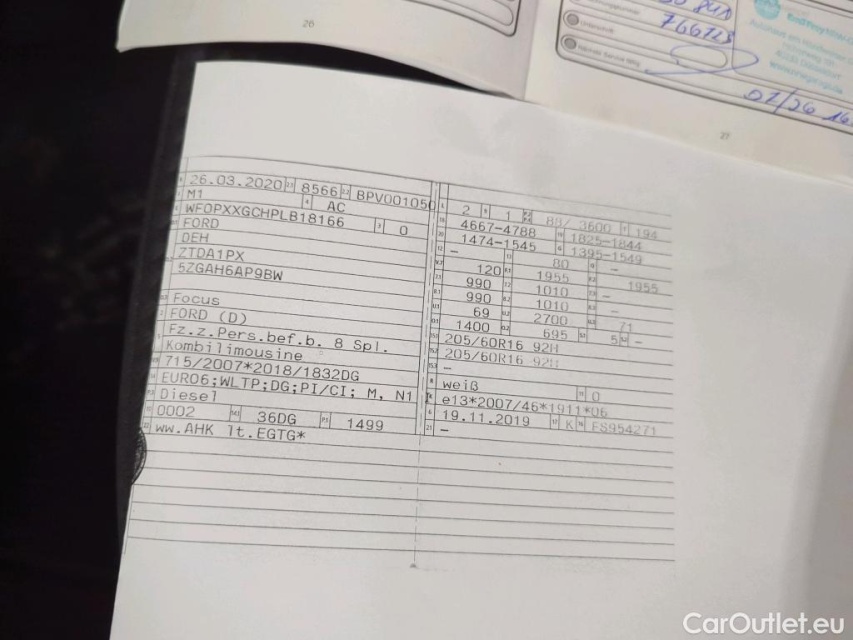 26
766723
27
01/26
26.03.2020 8566 BPV001050
M1 AC
WF0PXXGCHPLB18166 0
FORD
DEH
ZTDA1PX
5ZGAH6AP9BW
Focus
FORD (D)
Fz.z.Pers.bef.b. 8 Spl.
Kombilimousine
715/2007*2018/1832DG
EURO6;WLTP;DG;PI/CI; M, N1
Diesel
0002 36DG 1499
ww.AHK lt.EGTG*
2 1 88/ 3600 194
4667-4788 1825-1844
1474-1545 1395-1549
- 80 -
120 1955 1955
990 1010 -
990 1010 -
69 2700 71
1400 695 5 -
205/60R16 92H
205/60R16 92H
-
weiß 0
e13*2007/46*1911*06
19.11.2019 K FS954271
-
CarOutlet.eu